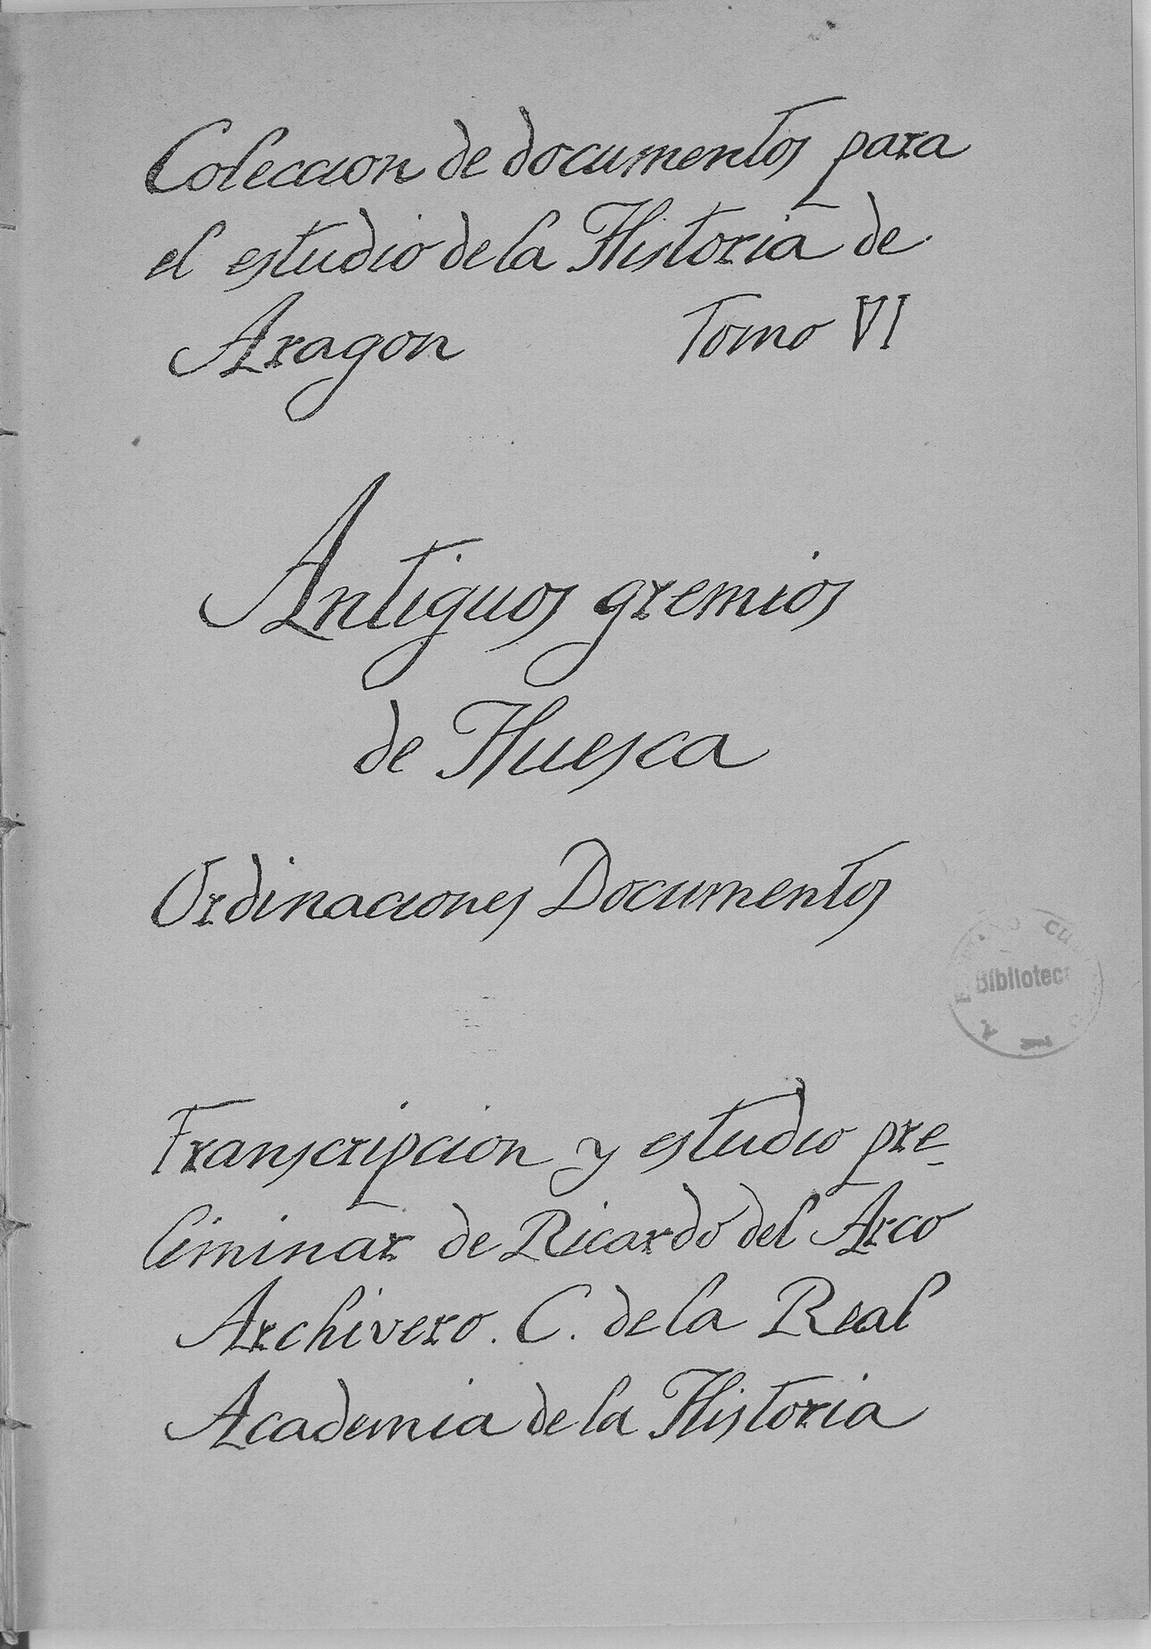 Coleccion de documentos para
el estudio de la Historia de
Aragon Tomo VI
Antiguos gremios
de Huesca
Ordinaciones Documentos
Biblioteca
Transcripcion y estudio pre-
liminar de Ricardo del Arco
Archivero. C. de la Real
Academia de la Historia